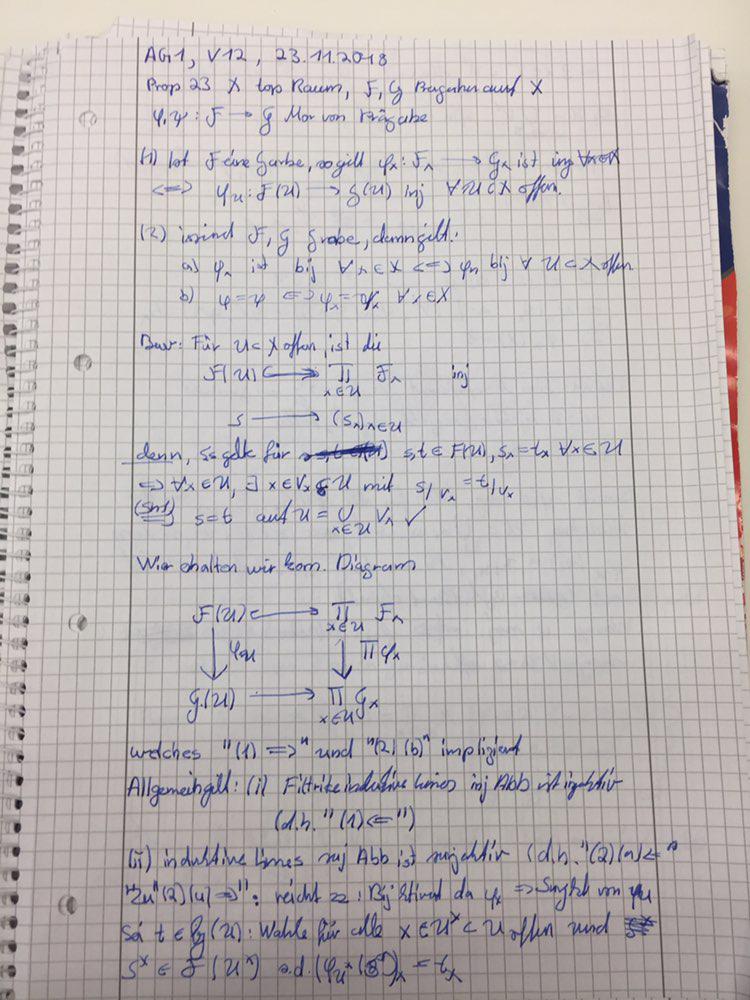 AG1, V12, 23.11.2018
Prop 23 X top Raum, F, G auf X
φ,ψ : F → G Mor von
(1) Ist F eine Garbe, so gilt φₓ : Fₓ → Gₓ ist inj ∀x∈X
<=> φ_U : F(U) → G(U) inj ∀ U⊂X offen.
(2) sind F, G Grabe, dann gilt:
a) φₓ ist bij ∀x∈X <=> φ_U bij ∀ U⊂X offen
b) φ=ψ <=> φₓ=ψₓ ∀x∈X
Bew: Für U⊂X offen, ist die
F(U) ↪ ∏_{x∈U} Fₓ inj
s → (sₓ)_{x∈U}
denn, für s,t∈F(U), sₓ=tₓ ∀x∈U
=> ∀x∈U, ∃ x∈Vₓ⊂U mit s|_{Vₓ} = t|_{Vₓ}
=> s=t auf U = ∪_{x∈U} Vₓ ✓
Wir erhalten wir kom. Diagram
F(U) ↪ ∏_{x∈U} Fₓ
↓ φ_U ↓ ∏φₓ
G(U) → ∏_{x∈U} Gₓ
welches "(1) =>" und "(2)(b)" impliziert
Allgemein gilt: (i) inj Abb ist injektiv
(d.h. "(1) <=")
(ii) induktive limes surj Abb ist surjektiv (d.h. "(2)(a) <="
"Zu "(2)(a) =>": reicht zz: da φₓ => von φ_U
Sei t ∈ G(U): Wähle für alle x ∈ Uˣ ⊂ U offen und
sˣ ∈ F(Uˣ) s.d. (φ_{Uˣ}(sˣ))ₓ = tₓ